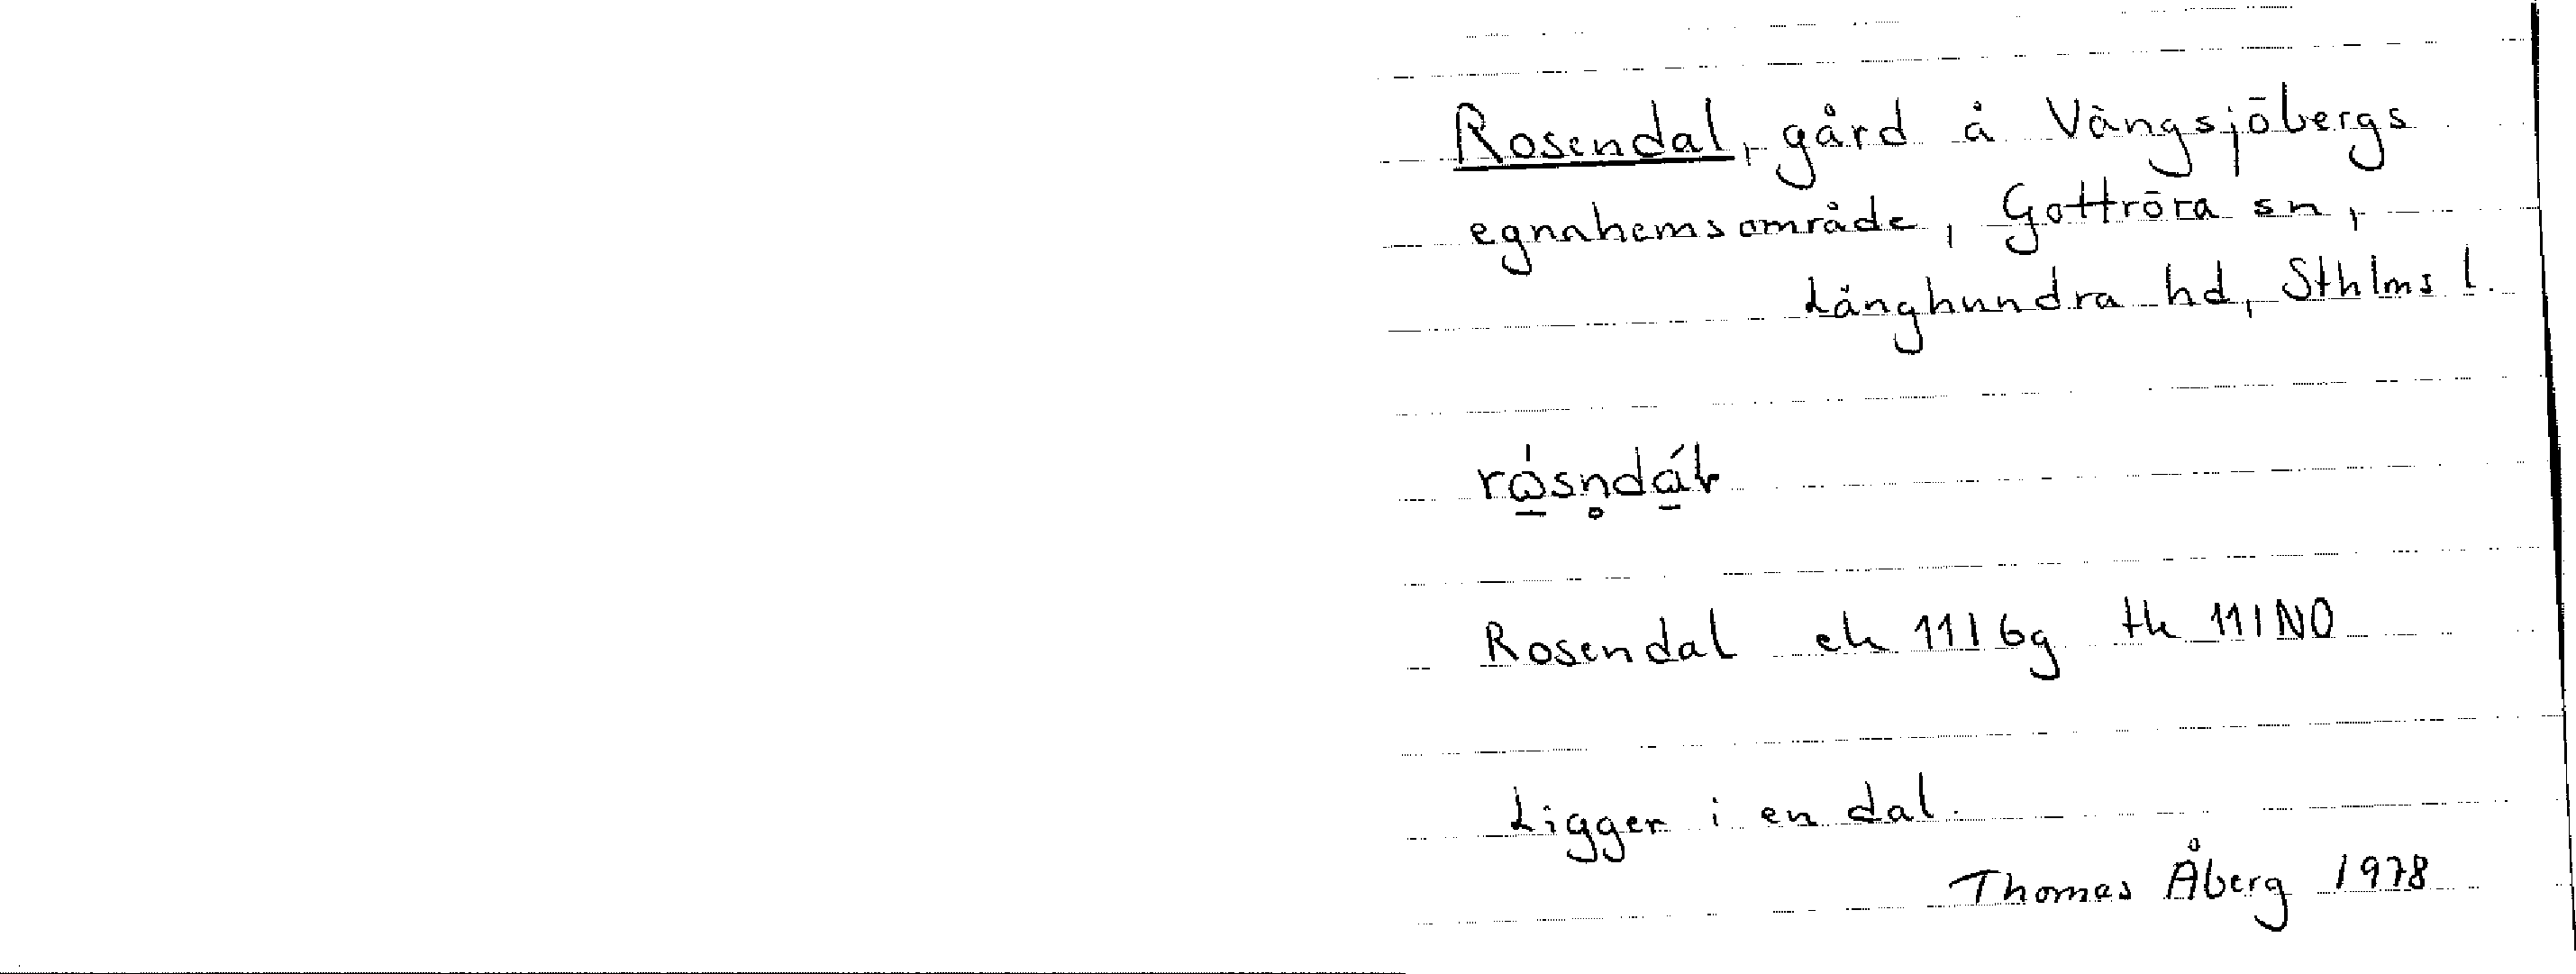 Rosendal, gård å Vängsjöbergs
egnahemsområde, Gottröra sn,
Långhundra hd, Sthlms l.
rώ̲sn̥dá̲ƚ
Rosendal ek 11I 6g tk 11I NO
Ligger i en dal.
Thomas Åberg 1978